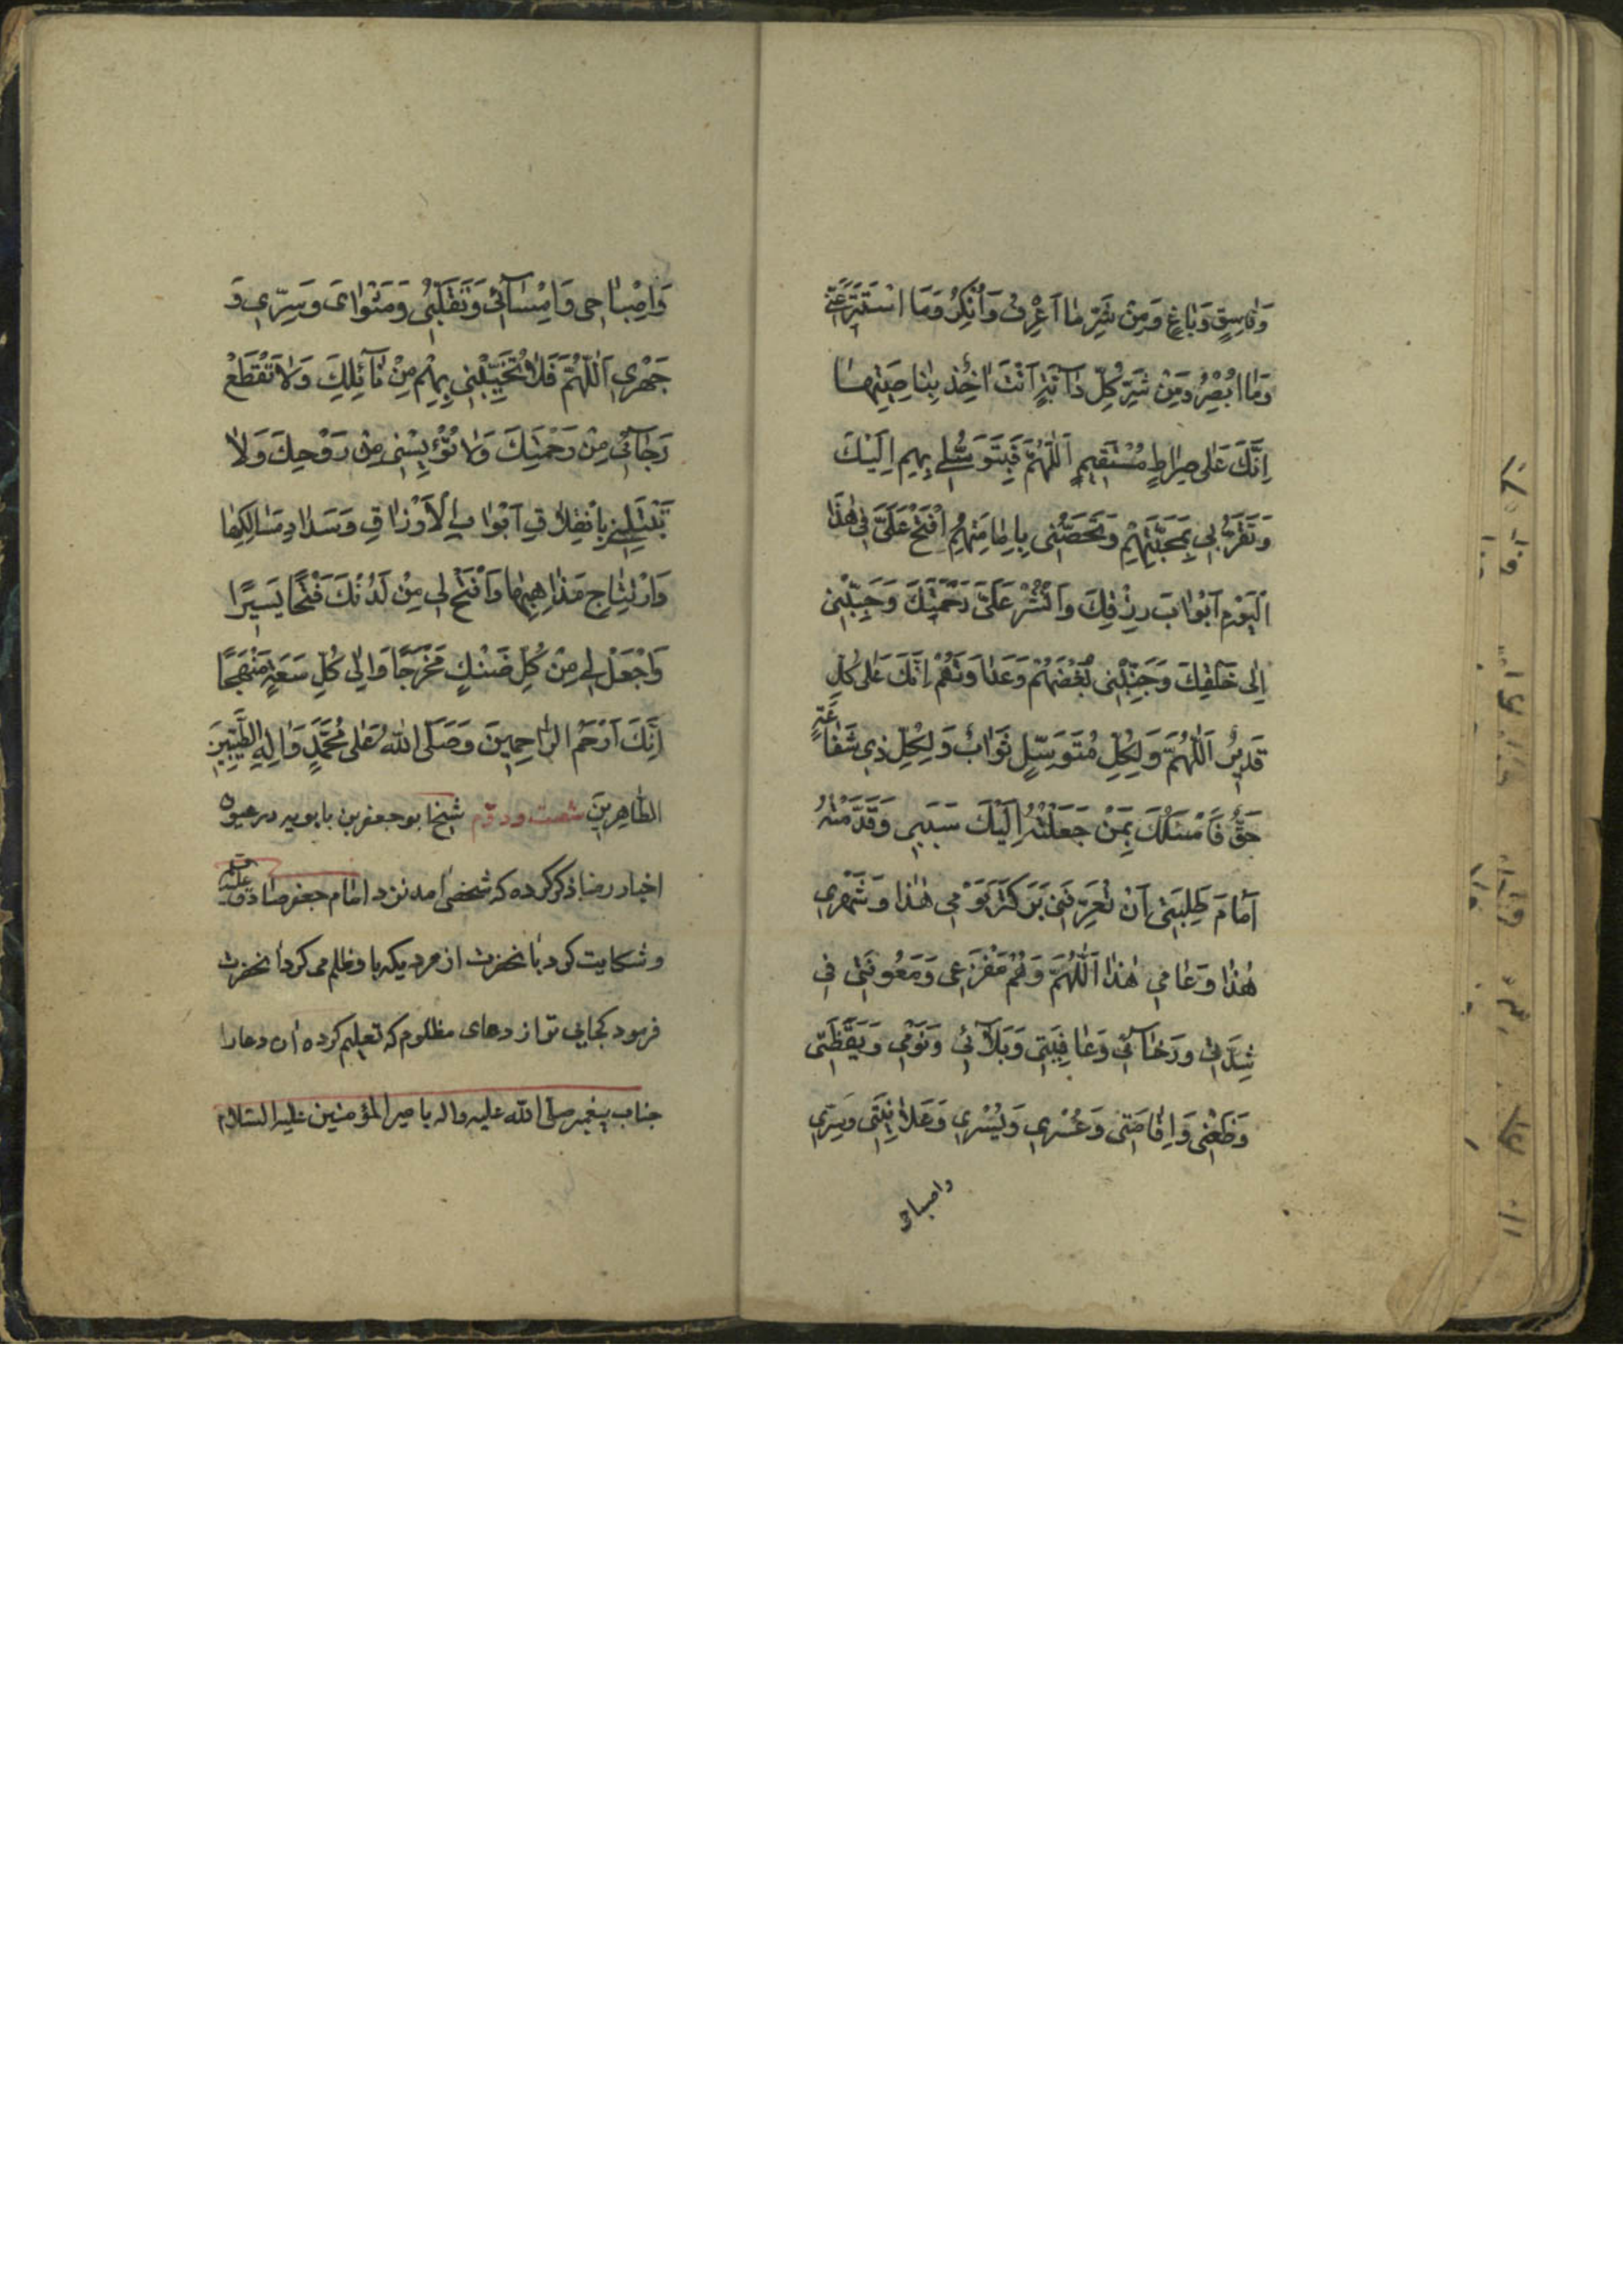 وَفاسِقٍ وَباغٍ وَمِنْ شَرِّ ما اَعْرِفُ وَاُنْكِرُ وَمَا اسْتَتَرَ عَنّي
وَما اُبْصِرُ وَمِنْ شَرِّ كُلِّ دآبَّةٍ اَنْتَ اٰخِذٌ بِناصِيَتِها
اِنَّكَ عَلى صِراطٍ مُسْتَقيمٍ اَللّٰهُمَّ فَبِتَوَسُّلي بِهِم اِلَيْكَ
وَتَقَرُّبي بِمَحَبَّتِهِمْ وَتَحَصُّني بِاِمامَتِهِمْ افْتَحْ عَلَيَّ في هٰذَا
الْيَوْمِ اَبْوابَ رِزْقِكَ وَانْشُرْ عَلَيَّ رَحْمَتَكَ وَحَبِّبْني
اِلى خَلْقِكَ وَجَنِّبْني بُغْضَهُمْ وَعَداوَتَهُمْ اِنَّكَ عَلى كُلِّ
قَديرٌ اَللّٰهُمَّ وَلِكُلِّ مُتَوَسِّلٍ ثَوابٌ وَلِكُلِّ ذي شَفاعَةٍ
حَقٌّ فَاَسْئَلُكَ بِمَنْ جَعَلْتُهُ اِلَيْكَ سَبَبي وَقَدَّمْتُهُ
اَمامَ طَلِبَتي اَنْ تُعَرِّفَني بَرَكَةَ يَوْمي هٰذا وَشَهْري
هٰذا وَعامي هٰذا اَللّٰهُمَّ وَهُمْ مَفْزَعي وَمَعُونَتي في
شِدَّتي ورَخآئي وَعافِيَتي وَبَلآئي وَنَوْمي وَيَقْظَتي
وَظَعْني وَاِقامَتي وَعُسْري وَيُسْري وَعَلانِيَتي وَسِرّي
واصباحي
وَاِصْباحي وَاِمْسآئي وَتَقَلُّبي وَمَثْوايَ وَسِرّي وَ
جَهْري اَللّٰهُمَّ فَلا تُخَيِّبْني بِهِمْ مِنْ نآئِلِكَ وَلا تَقْطَعْ
رَجآئي مِنْ رَحْمَتِكَ وَلا تُؤْيِسْني مِنْ رَوْحِكَ وَلا
تَبْتَلِيَنّي بِانْغِلاقِ اَبْوابِ الْاَرْزاقِ وَسَدادِ مَسالِكِها
وَارْتِتاجِ مَذاهِبِها وَافْتَحْ لي مِنْ لَدُنْكَ فَتْحًا يَسيرًا
وَاجْعَلْ لي مِنْ كُلِّ ضَنْكٍ مَخْرَجًا وَاِلى كُلِّ سَعَةٍ مَنْهَجًا
اِنَّكَ اَرْحَمُ الرّاحِمينَ وَصَلَّى اللّٰهُ عَلى مُحَمَّدٍ وَاٰلِهِ الطَّيِّبينَ
الطّاهِرينَ شصت ودوّم شيخ ابو جعفر بن بابويه در عيون
اخبار رضا ذكر كرده كه شخصى امد نزد امام جعفر صادق عليه
وشكايت كرد بانحضرت از مرديكه باو ظلم مى كرد انحضرت
فرمود كجايى تو از دعاى مظلوم كه تعليم كرده ان دعا را
جناب پيغمبر صلى الله عليه واله باميرالمؤمنين عليه السلام